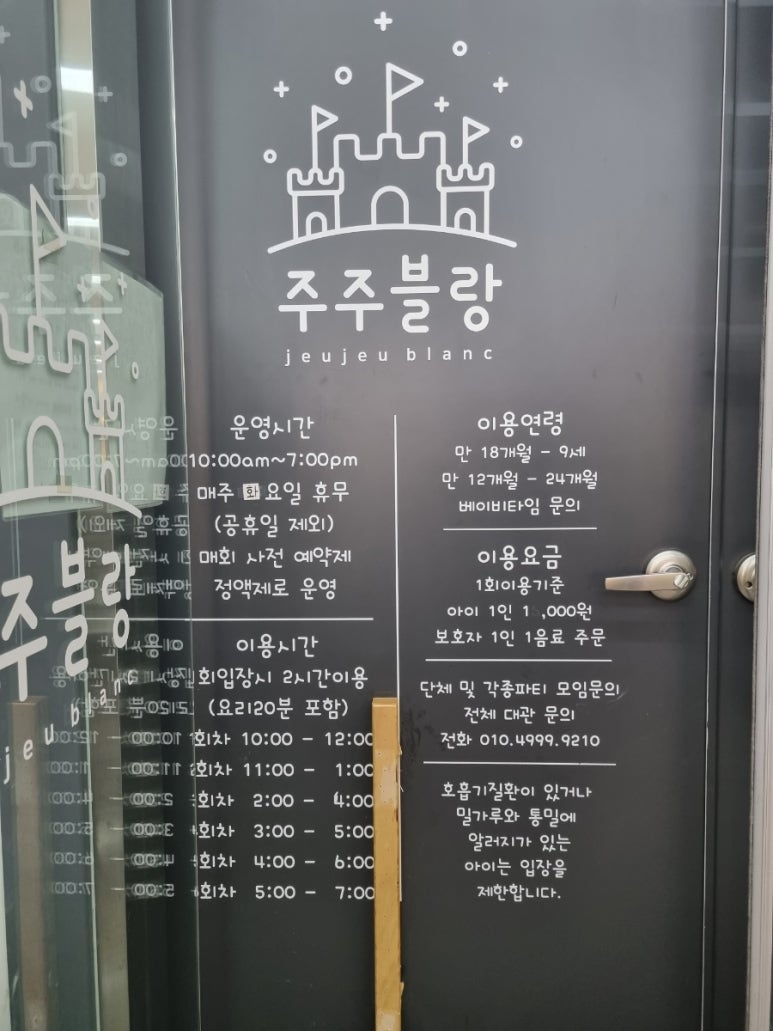 주주블랑
jeujeu blanc
운영시간
10:00am~7:00pm
매주 화요일 휴무
(공휴일 제외)
매회 사전 예약제
정액제로 운영
이용시간
회입장시 2시간이용
(요리20분 포함)
회차 10:00 - 12:00
회차 11:00 - 1:00
회차 2:00 - 4:00
회차 3:00 - 5:00
회차 4:00 - 6:00
회차 5:00 - 7:00
이용연령
만 18개월 - 9세
만 12개월 - 24개월
베이비타임 문의
이용요금
1회이용기준
아이 1인 1 ,000원
보호자 1인 1음료 주문
단체 및 각종파티 모임문의
전체 대관 문의
전화 010.4999.9210
호흡기질환이 있거나
밀가루와 통밀에
알러지가 있는
아이는 입장을
제한합니다.